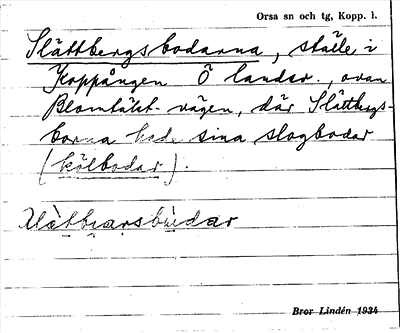 Orsa sn och tg, Kopp. l.
Slättbergsbodarna, ställe i
Koppången Ö landsv., ovan
vägen, där Slättbergs-
borna hade sina slogbodar
(kölbodar).
Bror Lindén 1934